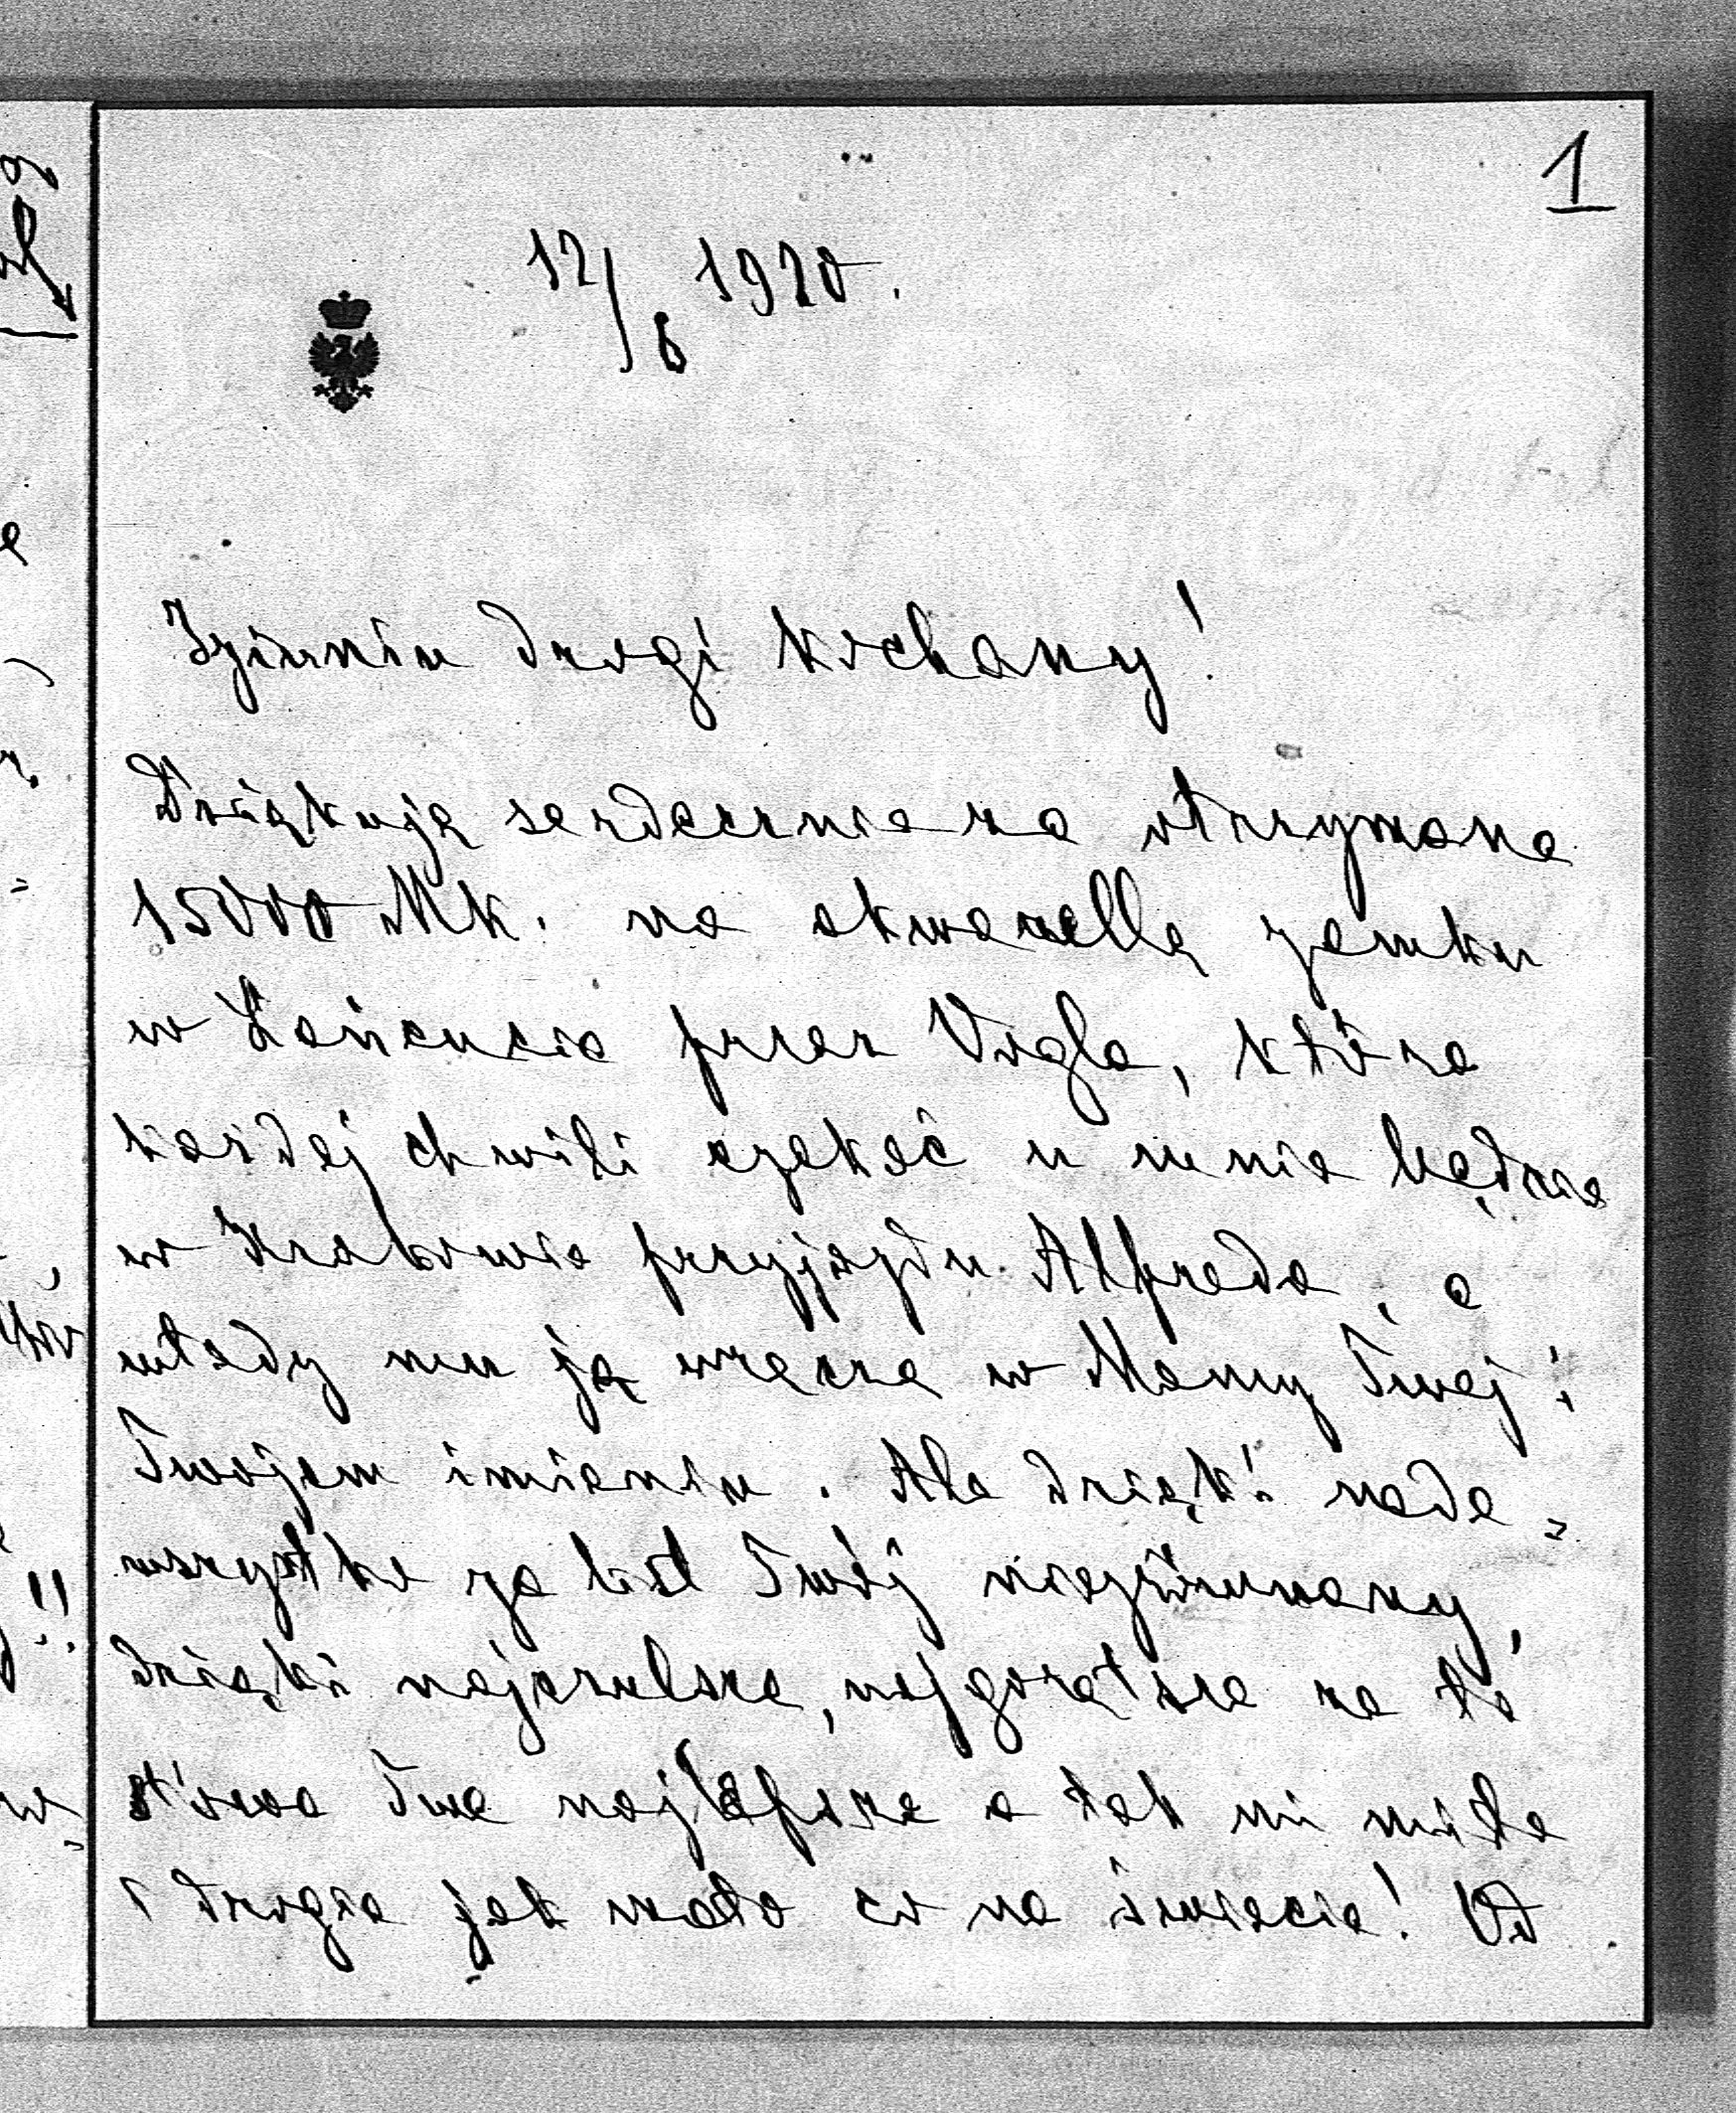 1
12/6 1920.
Dziunin drogi kochany!
Dziękuję serdecznie za otrzymane
15000 Mk. na akwarellę zamku
w Łańcucie przez Vogla, która
każdej chwili czekać u mnie będzie
w Krakowie przyjazdu Alfreda, a
wtedy mu ją wręczę w Mamy Twej i
Twojem imieniu. Ale dzięki nade=
wszystko za list Twój niezrównany,
dzięki najczulsze, najgorętsze za te
słowa Twe najlepsze a tak mi miłe
i drogie jak mało co na świecie! Od